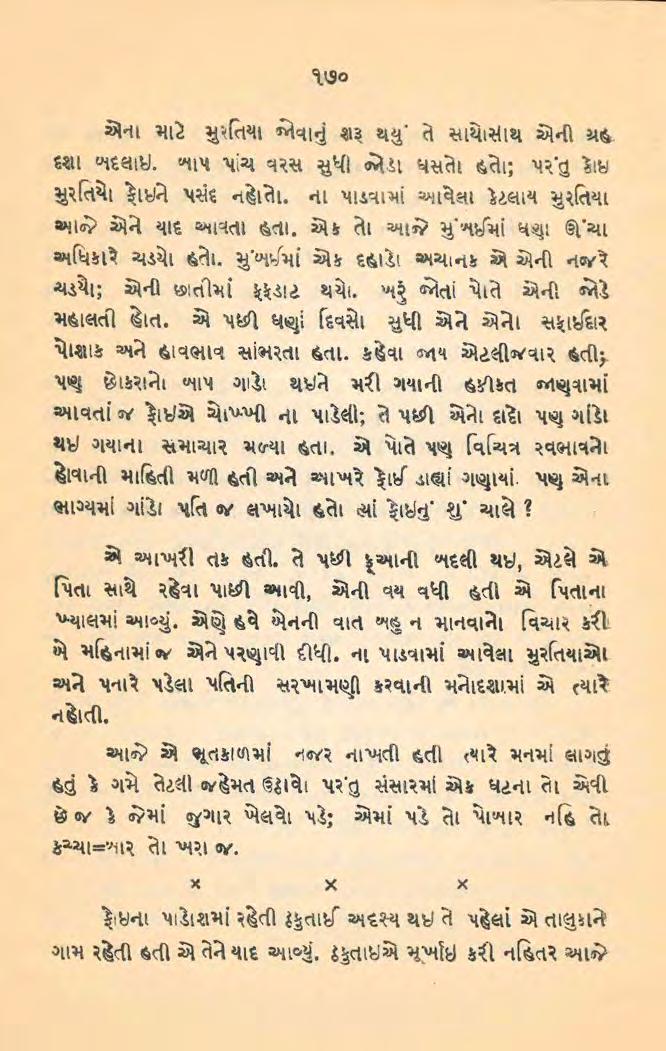 ૧૭૦
એના માટે મુરતિયા જોવાનું શરૂ થયું તે સાથોસાથ એની ગ્રહ
દશા બદલાઇ. બાપ પાંચ વરસ સુધી જોડા ઘસતો હતો; પરંતુ કોઇ
મુરતિયો ફોઇને પસંદ નહોતો. ના પાડવામાં આવેલા કેટલાય મુરતિયા
આજે એને યાદ આવતા હતા. એક તો આજે મુંબઈમાં ઘણા ઊંચા
અધિકારે ચડયો હતો. મુંબઈમાં એક દહાડો અચાનક એ એની નજરે
ચડયો; એની છાતીમાં ફફડાટ થયો. ખરૂં જોતાં પોતે એની જોડે
મહાલતી હોત. એ પછી ઘણાં દિવસો સુધી એને એનો સફાઈદાર
પોશાક અને હાવભાવ સાંભરતા હતા. કહેવા જાય એટલીજવાર હતી;
પણ છોકરાનો બાપ ગાડો થઇને મરી ગયાની હકીકત જાણવામાં
આવતાં જ ફોઇએ ચોખ્ખી ના પાડેલી; તે પછી એનો દાદો પણ ગાંડો
થઇ ગયાના સમાચાર મળ્યા હતા. એ પોતે પણ વિચિત્ર સ્વભાવનો
હોવાની માહિતી મળી હતી અને આખરે ફોઈ ડાહ્યાં ગણાયાં. પણ એના
ભાગ્યમાં ગાંડો પતિ જ લખાયો હતો ત્યાં ફોઇનું શું ચાલે ?
એ આખરી તક હતી. તે પછી ફૂઆની બદલી થઇ, એટલે એ
પિતા સાથે રહેવા પાછી આવી, એની વય વધી હતી એ પિતાના
ખ્યાલમાં આવ્યું. એણે હવે બેનની વાત બહુ ન માનવાનો વિચાર કરી
બે મહિનામાં જ એને પરણાવી દીધી. ના પાડવામાં આવેલા મુરતિયાઓ
અને પનારે પડેલા પતિની સરખામણી કરવાની મનોદશામાં એ ત્યારે
નહોતી.
આજે એ ભૂતકાળમાં નજર નાખતી હતી ત્યારે મનમાં લાગતું
હતું કે ગમે તેટલી જહેમત ઉઠાવો પરંતુ સંસારમાં એક ઘટના તો એવી
છે જ કે જેમાં જુગાર ખેલવો પડે; એમાં પડે તો પોબાર નહિ તો
કચ્ચા=બાર તો ખરા જ.
× × ×
ફોઇના પાડોશમાં રહેતી ઠકુતાઈ અદૃસ્ય થઇ તે પહેલાં એ તાલુકાને
ગામ રહેતી હતી એ તેને યાદ આવ્યું. ઠકુતાઇએ મૂર્ખાઇ કરી નહિતર આજે